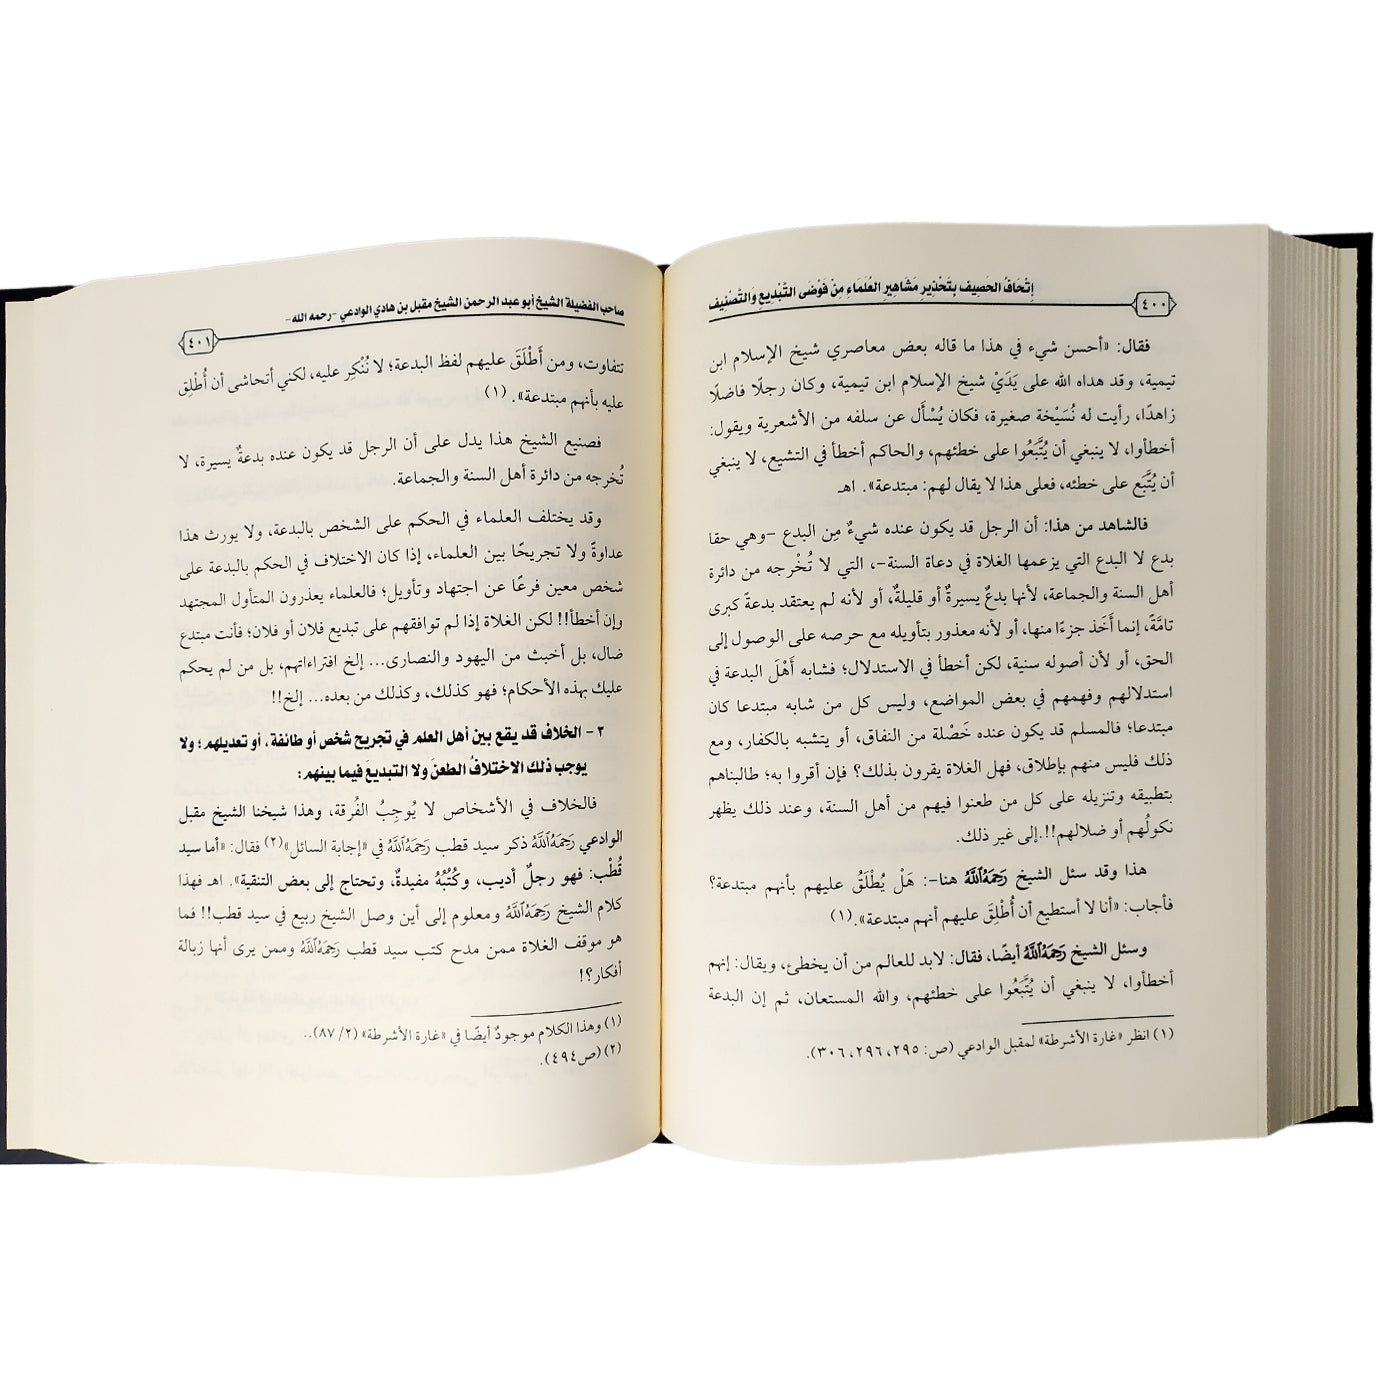 إِتْحَافُ الحَصِيفِ بِتَحْذِيرِ مَشَاهِيرِ العُلَمَاءِ مِنْ فَوْضَى التَّبْدِيعِ وَالتَّصْنِيفِ
٤٠٠
فقال: «أحسن شيء في هذا ما قاله بعض معاصري شيخ الإسلام ابن
تيمية، وقد هداه الله على يَدَيْ شيخ الإسلام ابن تيمية، وكان رجلًا فاضلًا
زاهدًا، رأيت له نُسَيْخة صغيرة، فكان يُسْأَل عن سلفه من الأشعرية ويقول:
أخطأوا، لا ينبغي أن يُتَّبَعُوا على خطئهم، والحاكم أخطأ في التشيع، لا ينبغي
أن يُتَّبع على خطئه، فعلى هذا لا يقال لهم: مبتدعة». اهـ
فالشاهد من هذا: أن الرجل قد يكون عنده شيءٌ مِن البدع -وهي حقا
بدع لا البدع التي يزعمها الغلاة في دعاة السنة-، التي لا تُخْرجه من دائرة
أهل السنة والجماعة، لأنها بدعٌ يسيرةٌ أو قليلةٌ، أو لأنه لم يعتقد بدعةً كبرى
تامَّةً، إنما أَخَذ جزءًا منها، أو لأنه معذور بتأويله مع حرصه على الوصول إلى
الحق، أو لأن أصوله سنية، لكن أخطأ في الاستدلال؛ فشابه أَهْلَ البدعة في
استدلالهم وفهمهم في بعض المواضع، وليس كل من شابه مبتدعا كان
مبتدعا؛ فالمسلم قد يكون عنده خَصْلة من النفاق، أو يتشبه بالكفار، ومع
ذلك فليس منهم بإطلاق، فهل الغلاة يقرون بذلك؟ فإن أقروا به؛ طالبناهم
بتطبيقه وتنزيله على كل من طعنوا فيهم من أهل السنة، وعند ذلك يظهر
نكولُهم أو ضلالهم!!.إلى غير ذلك.
هذا وقد سئل الشيخ رَحِمَهُ ٱللَّهُ هنا-: هَلْ يُطْلَقُ عليهم بأنهم مبتدعة؟
فأجاب: «أنا لا أستطيع أن أُطْلِقَ عليهم أنهم مبتدعة».(١)
وسئل الشيخ رَحِمَهُ ٱللَّهُ أيضًا، فقال: لابد للعالم من أن يخطئ، ويقال: إنهم
أخطأوا، لا ينبغي أن يُتَّبَعُوا على خطئهم، والله المستعان، ثم إن البدعة
(١) انظر «غارة الأشرطة» لمقبل الوادعي (ص: ٢٩٥، ٢٩٦، ٣٠٦).
صاحب الفضيلة الشيخ أبو عبد الرحمن الشيخ مقبل بن هادي الوادعي -رحمه الله-
٤٠١
تتفاوت، ومن أَطْلَقَ عليهم لفظ البدعة؛ لا نُنْكِر عليه، لكني أتحاشى أن أُطْلِق
عليه بأنهم مبتدعة». (١)
فصنيع الشيخ هذا يدل على أن الرجل قد يكون عنده بدعةٌ يسيرة، لا
تُخرجه من دائرة أهل السنة والجماعة.
وقد يختلف العلماء في الحكم على الشخص بالبدعة، ولا يورث هذا
عداوةً ولا تجريحًا بين العلماء، إذا كان الاختلاف في الحكم بالبدعة على
شخص معين فرعًا عن اجتهاد وتأويل؛ فالعلماء يعذرون المتأول المجتهد
وإن أخطأ!! لكن الغلاة إذا لم توافقهم على تبديع فلان أو فلان؛ فأنت مبتدع
ضال، بل أخبث من اليهود والنصارى... إلخ افتراءاتهم، بل من لم يحكم
عليك بهذه الأحكام؛ فهو كذلك، وكذلك من بعده... إلخ!!
٢- الخلاف قد يقع بين أهل العلم في تجريح شخص أو طائفة، أو تعديلهم؛ ولا
يوجب ذلك الاختلافُ الطعنَ ولا التبديعَ فيما بينهم:
فالخلاف في الأشخاص لا يُوجِبُ الفُرقة، وهذا شيخنا الشيخ مقبل
الوادعي رَحِمَهُ ٱللَّهُ ذكر سيد قطب رَحِمَهُ ٱللَّهُ في «إجابة السائل»(٢) فقال: «أما سيد
قُطْب: فهو رجلٌ أديب، وكُتُبُهُ مفيدةٌ، وتحتاج إلى بعض التنقية». اهـ فهذا
كلام الشيخ رَحِمَهُ ٱللَّهُ ومعلوم إلى أين وصل الشيخ ربيع في سيد قطب!! فما
هو موقف الغلاة ممن مدح كتب سيد قطب رَحِمَهُ ٱللَّهُ وممن يرى أنها زبالة
أفكار؟!
(١) وهذا الكلام موجودٌ أيضًا في «غارة الأشرطة» (٢/ ٨٧)..
(٢) (ص٤٩٤).